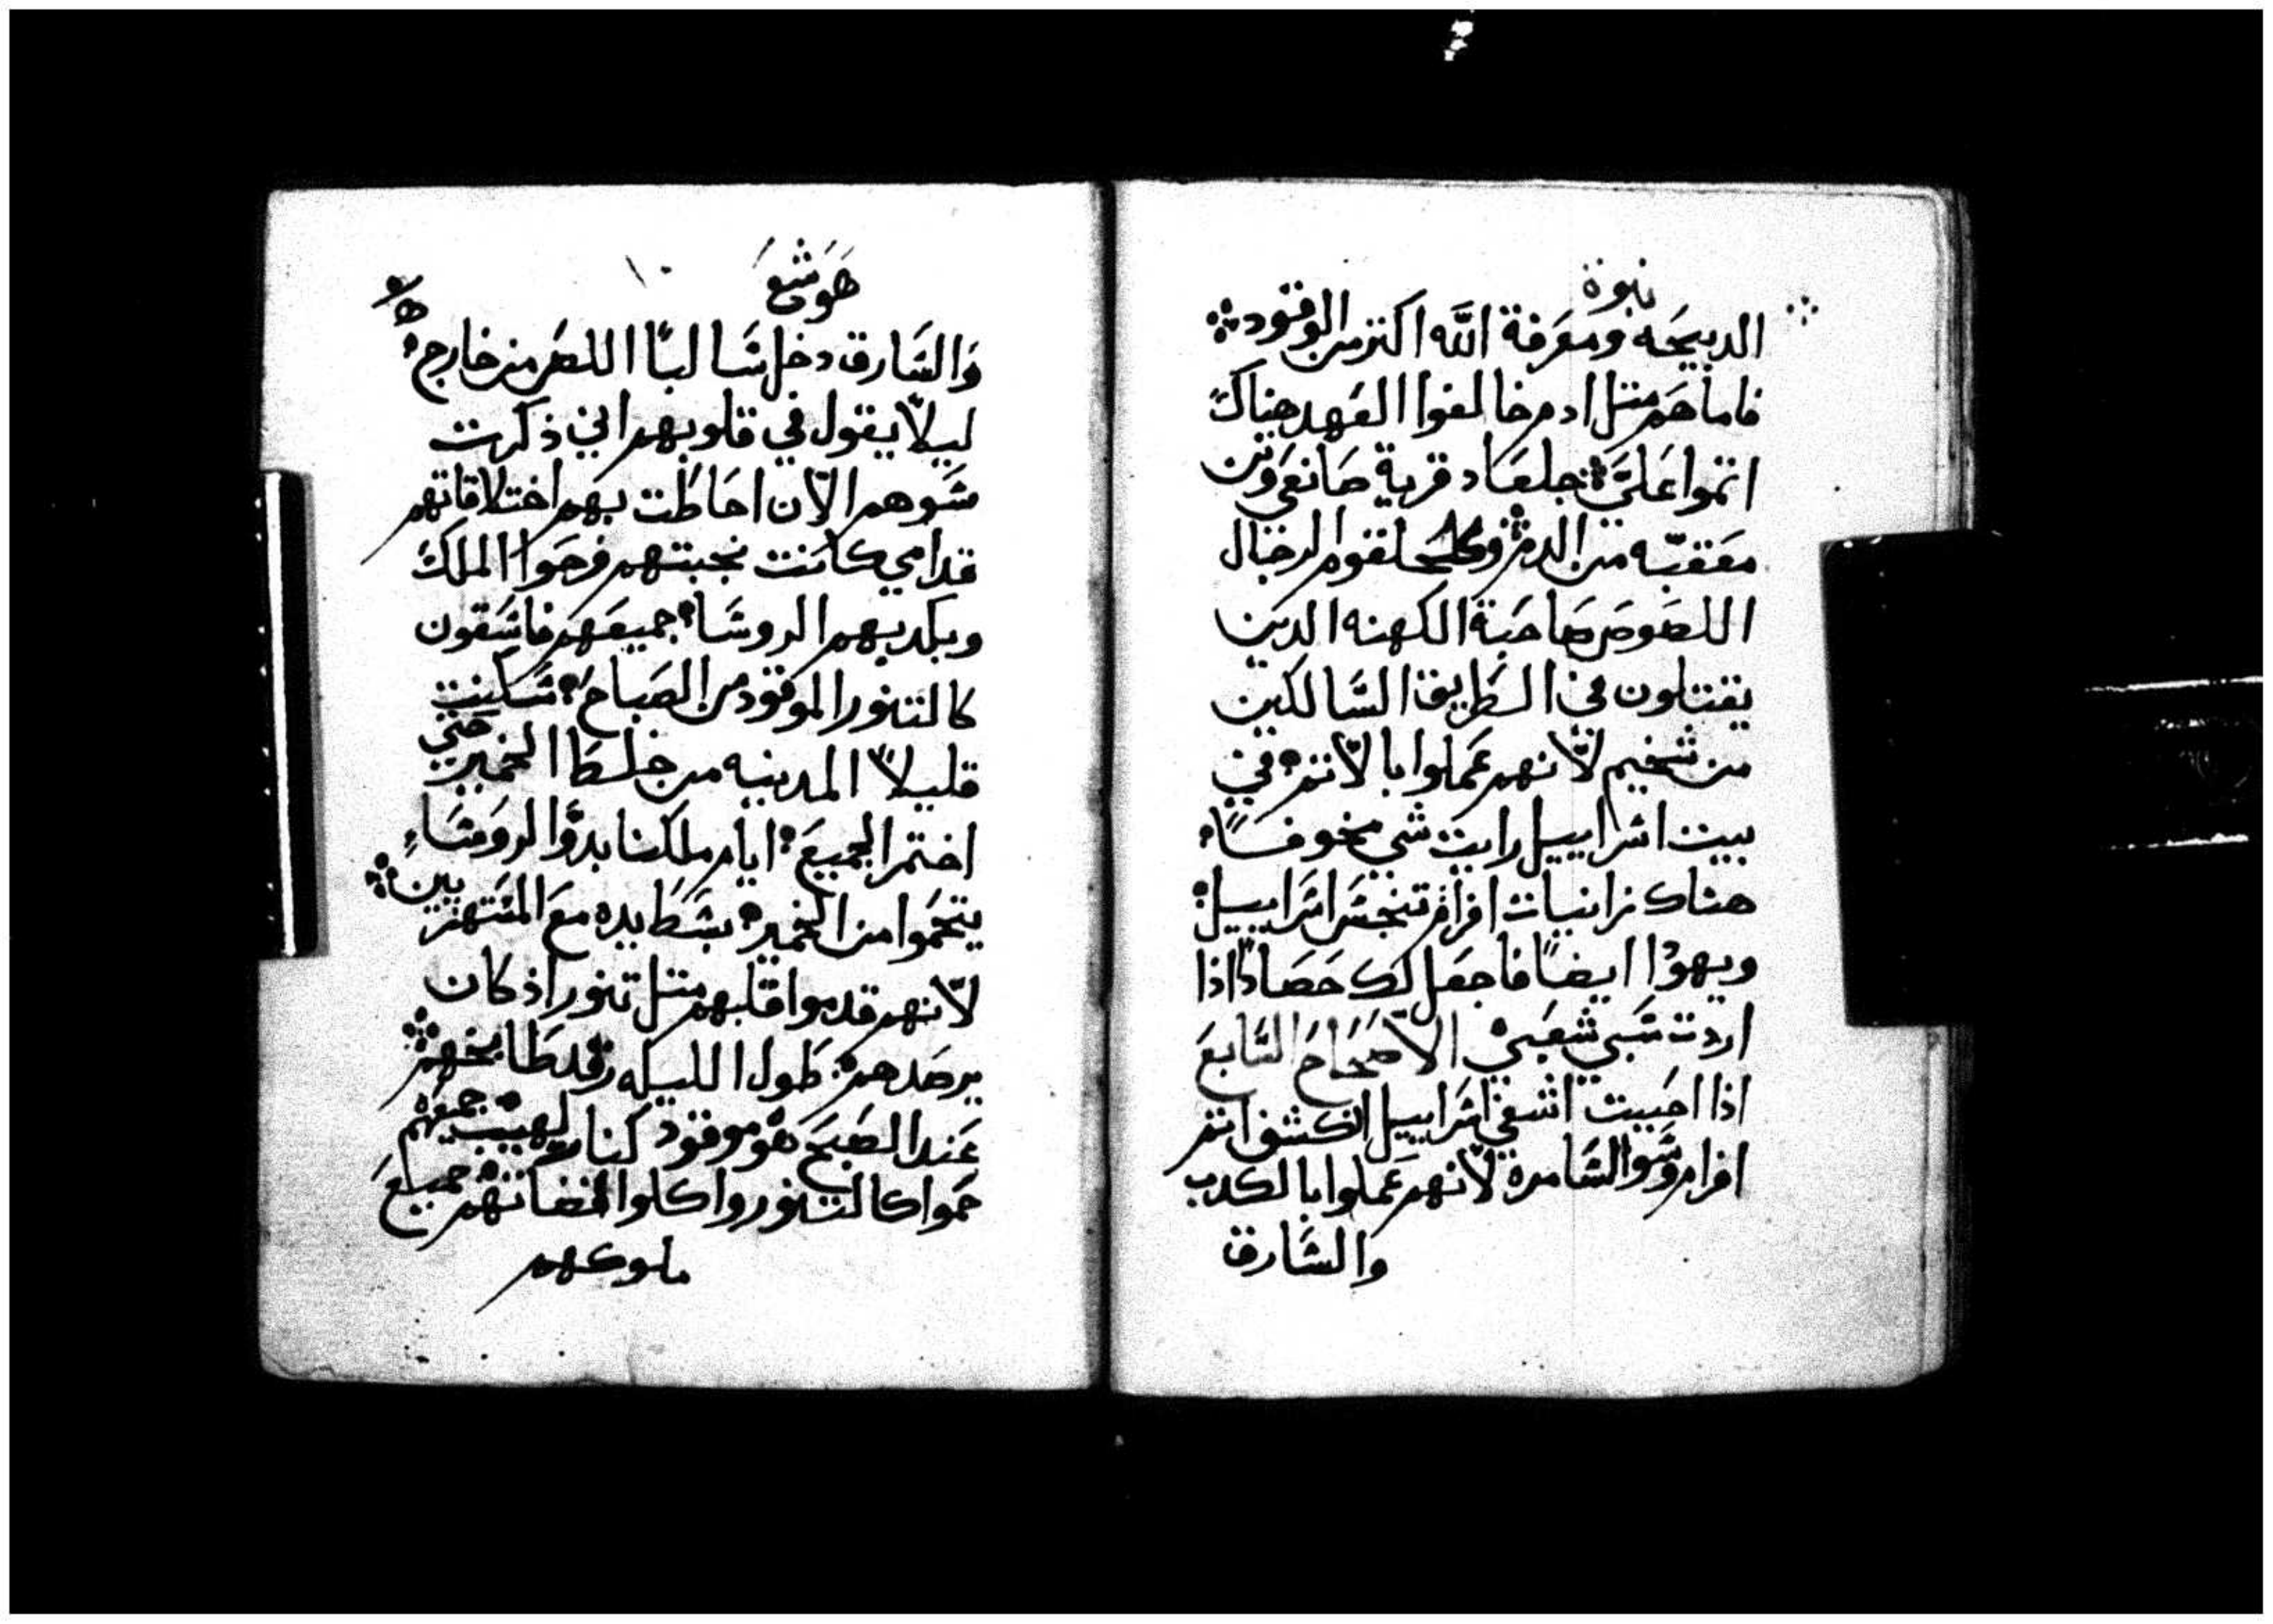 نبوة
الدبيحه ومعرفة الله اكتر من الوقود
فاما هم متل ادم خالفوا العهد هناك
اتموا علي جلعاد قرية صانعي وتن
معقبه من الدم وكلحلقوم الرجال
اللصوص صاحبة الكهنه الدين
يقتلون في الطريق السالكين
من شخيم لانهم عملوا بالاتم في
بيت اسراييل رايت شي مخوفا
هناك زانيات افرام تنجس اسراييل
ويهودا ايضا فاجعل لك حصادا اذا
اردت سبي شعبي الاصحاح السابع
اذا احببت اشفي اسراييل انكشف اتم
افرام وسوا السامرة لانهم عملوا بالكدب
والسارق
هوشع
والسارق دخل سالبا اللص من خارج
ليلا يقول في قلوبهم اني ذكرت
سوهم الان احاطت بهم اختلاقاتهم
قدامي كانت نجبتهم فرحوا الملك
وبكدبهم الروسا جميعهم فاسقون
كالتنور الموقود من الصباح سكينت
قليلا المدينه من خلط الخمير حتي
اختمر الجميع ايام ملكنا بدوا الروسا
يتحموا من الخمير بسط يده مع المستهزيين
لانهم قدموا قلبهم متل تنور اذ كان
يرصدهم طول الليل رقد طابخهم
عند الصبح هو موقود كنار لهيب جميعهم
حموا كالتنور واكلوا لقضاتهم جميع
ملوكهم